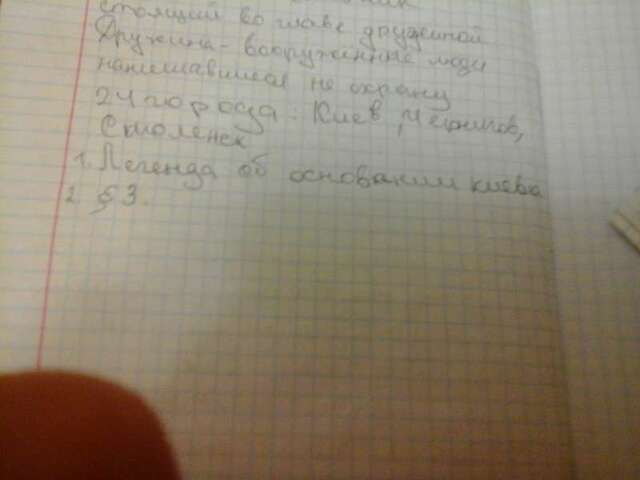 стоящий во главе дружиной
Дружина - вооруженные люди
нанимавшиеся на охрану
24 города: Киев, Чернигов,
Смоленск
1. Легенда об основании киева
2. § 3.